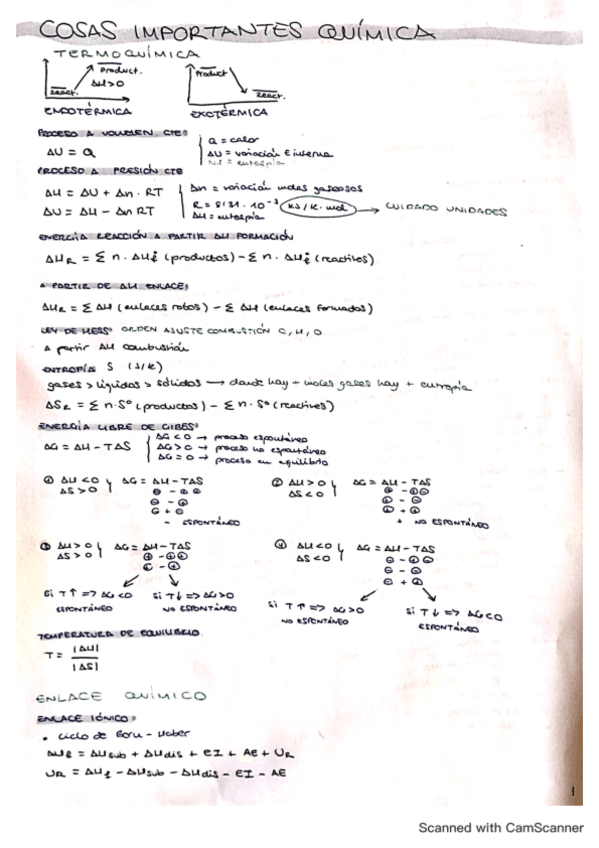 COSAS IMPORTANTES QUÍMICA
TERMOQUÍMICA
Product.
React.
ΔH>0
ENDOTÉRMICA
Product
React.
EXOTÉRMICA
PROCESO A VOLUMEN CTE:
ΔU = Q
Q = calor
ΔU = variación E interna
PROCESO A PRESIÓN CTE
ΔH = ΔU + Δn · RT
ΔU = ΔH - Δn RT
Δn = variación moles gaseosos
R = 8'31 · 10⁻³ kJ/K·mol → CUIDADO UNIDADES
ΔH = entalpía
ENERGÍA REACCIÓN A PARTIR ΔH FORMACIÓN
ΔHR = Σ n · ΔHf° (productos) - Σ n · ΔHf° (reactivos)
A PARTIR DE ΔH ENLACE:
ΔHR = Σ ΔH (enlaces rotos) - Σ ΔH (enlaces formados)
LEY DE HESS: ORDEN AJUSTE COMBUSTIÓN C, H, O
A partir ΔH combustión
ENTROPÍA S (J/K)
gases > líquidos > sólidos → donde hay + moles gases hay + entropía
ΔSR = Σ n·S° (productos) - Σ n·S° (reactivos)
ENERGÍA LIBRE DE GIBBS:
ΔG = ΔH - TΔS
ΔG < 0 → proceso espontáneo
ΔG > 0 → proceso no espontáneo
ΔG = 0 → proceso en equilibrio
① ΔH < 0 ΔS > 0 ΔG = ΔH - TΔS
⊖ - ⊕⊕
⊖ - ⊕
⊖ + ⊖
- ESPONTÁNEO
② ΔH > 0 ΔS < 0 ΔG = ΔH - TΔS
⊕ - ⊕⊖
⊕ - ⊖
⊕ + ⊕
+ NO ESPONTÁNEO
③ ΔH > 0 ΔS > 0 ΔG = ΔH - TΔS
⊕ - ⊕⊕
⊕ - ⊕
Si T↑ => ΔG<0 ESPONTÁNEO
Si T↓ => ΔG>0 NO ESPONTÁNEO
④ ΔH < 0 ΔS < 0 ΔG = ΔH - TΔS
⊖ - ⊕⊖
⊖ - ⊖
⊖ + ⊕
Si T↑ => ΔG>0 NO ESPONTÁNEO
Si T↓ => ΔG<0 ESPONTÁNEO
TEMPERATURA DE EQUILIBRIO
T = |ΔH| / |ΔS|
ENLACE QUÍMICO
ENLACE IÓNICO:
• Ciclo de Born - Haber
ΔHf = ΔHsub + ΔHdis + EI + AE + UR
UR = ΔHf - ΔHsub - ΔHdis - EI - AE
1
Scanned with CamScanner